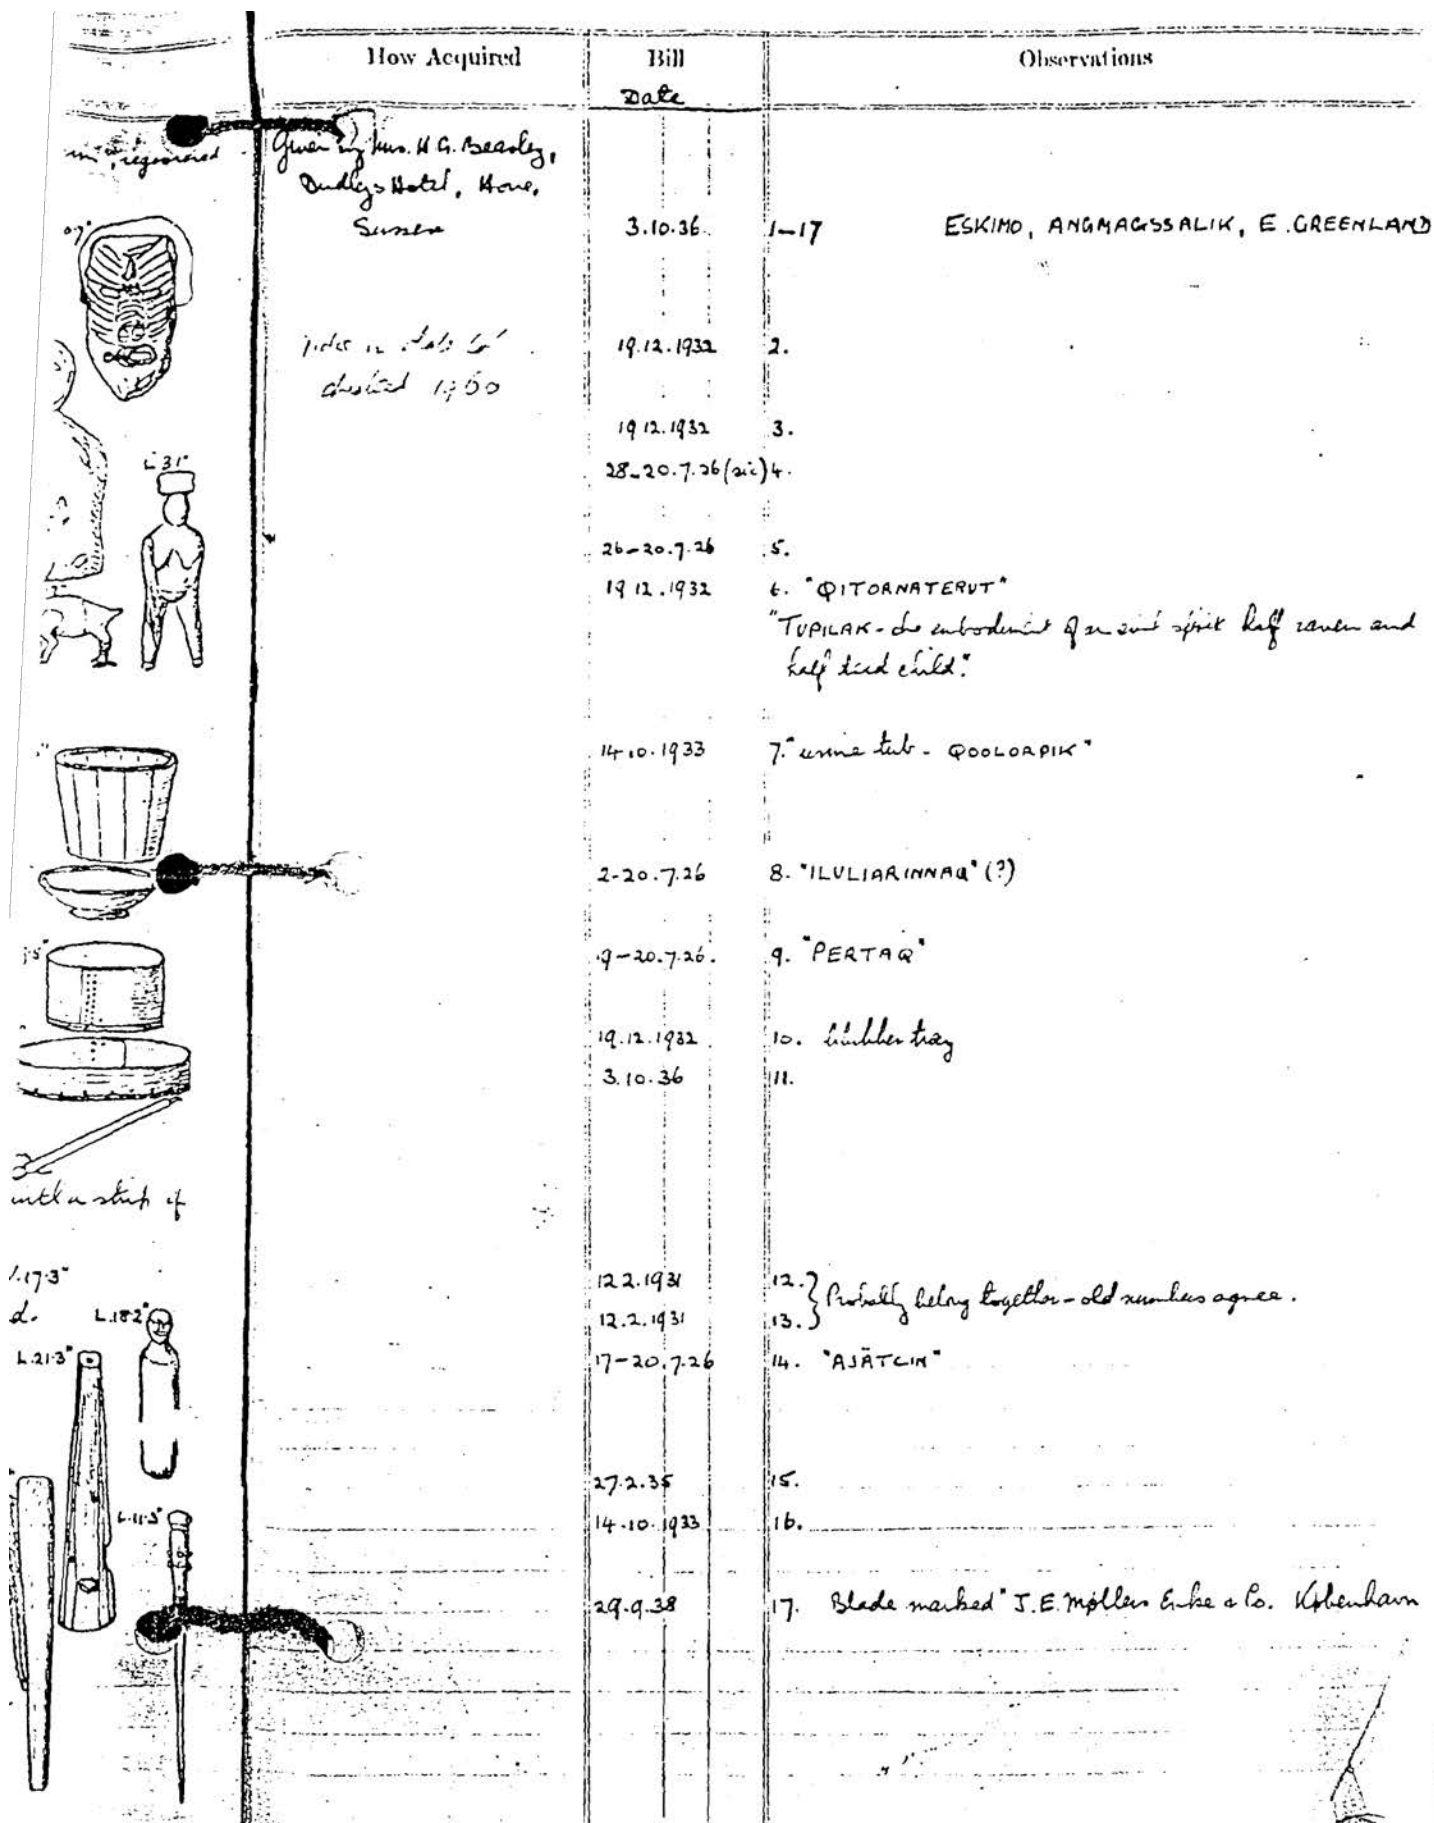 How Acquired
Bill
Observations
Date
registered
Given by Mrs. H. G. Beasley,
Dudleys Hotel, Hove,
Sussex
3.10.36. 1–17 ESKIMO, ANGMAGSSALIK, E. GREENLAND
19.12.1932 2.
checked 1960
19 12.1932 3.
L 31"
28–20.7.26 (sic) 4.
26–20.7.26 5.
19 12.1932 6. "QITORNATERUT"
"TUPILAK - the embodiment of an evil spirit half raven and
half dead child."
14.10.1933 7. "urine tub - QOOLORPIK"
2-20.7.26 8. "ILULIARINNAQ" (?)
9–20.7.26. 9. "PERTAQ"
19.12.1932 10. blubber tray
3.10.36 11.
with a strip of
.17.3"
d.
12 2.1931 12. } Probably belong together - old numbers agree.
12.2.1931 13.
L.18.2"
L.21.3"
17–20.7.26 14. "AJÄTCIN"
27.2.35 15.
L.11.5"
14.10.1933 16.
29.9.38 17. Blade marked "J.E. Møllers Enke & Co. København